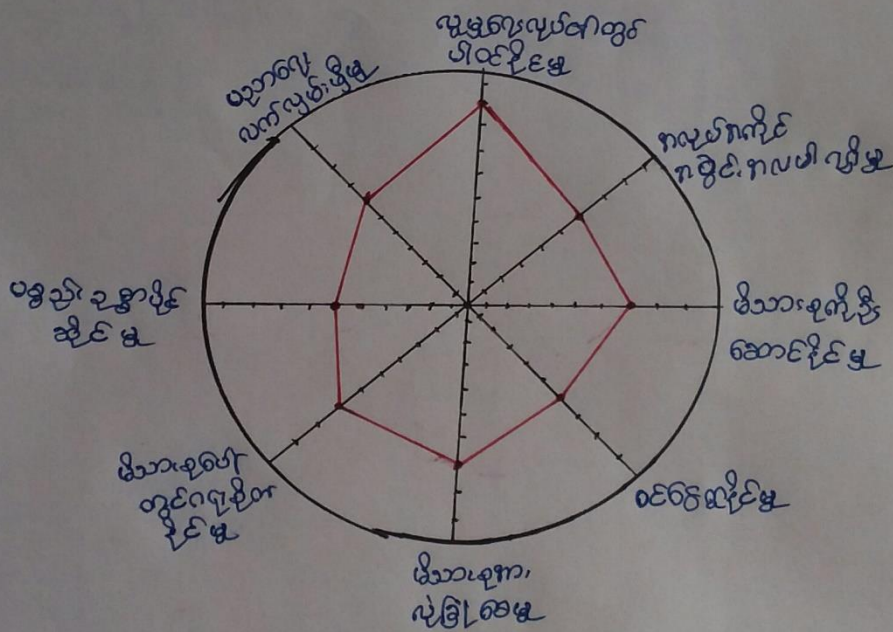 လူမှုရေးလုပ်ငန်းတွင်
ပါဝင်နိုင်မှု
အလုပ်အကိုင်
အခွင့်အလမ်း ရရှိမှု
မိသားစုကိုဦး
ဆောင်နိုင်မှု
ဝင်ငွေရှာနိုင်မှု
မိသားစုအား
လုံခြုံစေမှု
မိသားစုပေါ်
တွင်ဂရုစိုက်
နိုင်မှု
ပစ္စည်းဥစ္စာပိုင်
ဆိုင်မှု
ပညာရေး
လက်လှမ်းမှီမှု